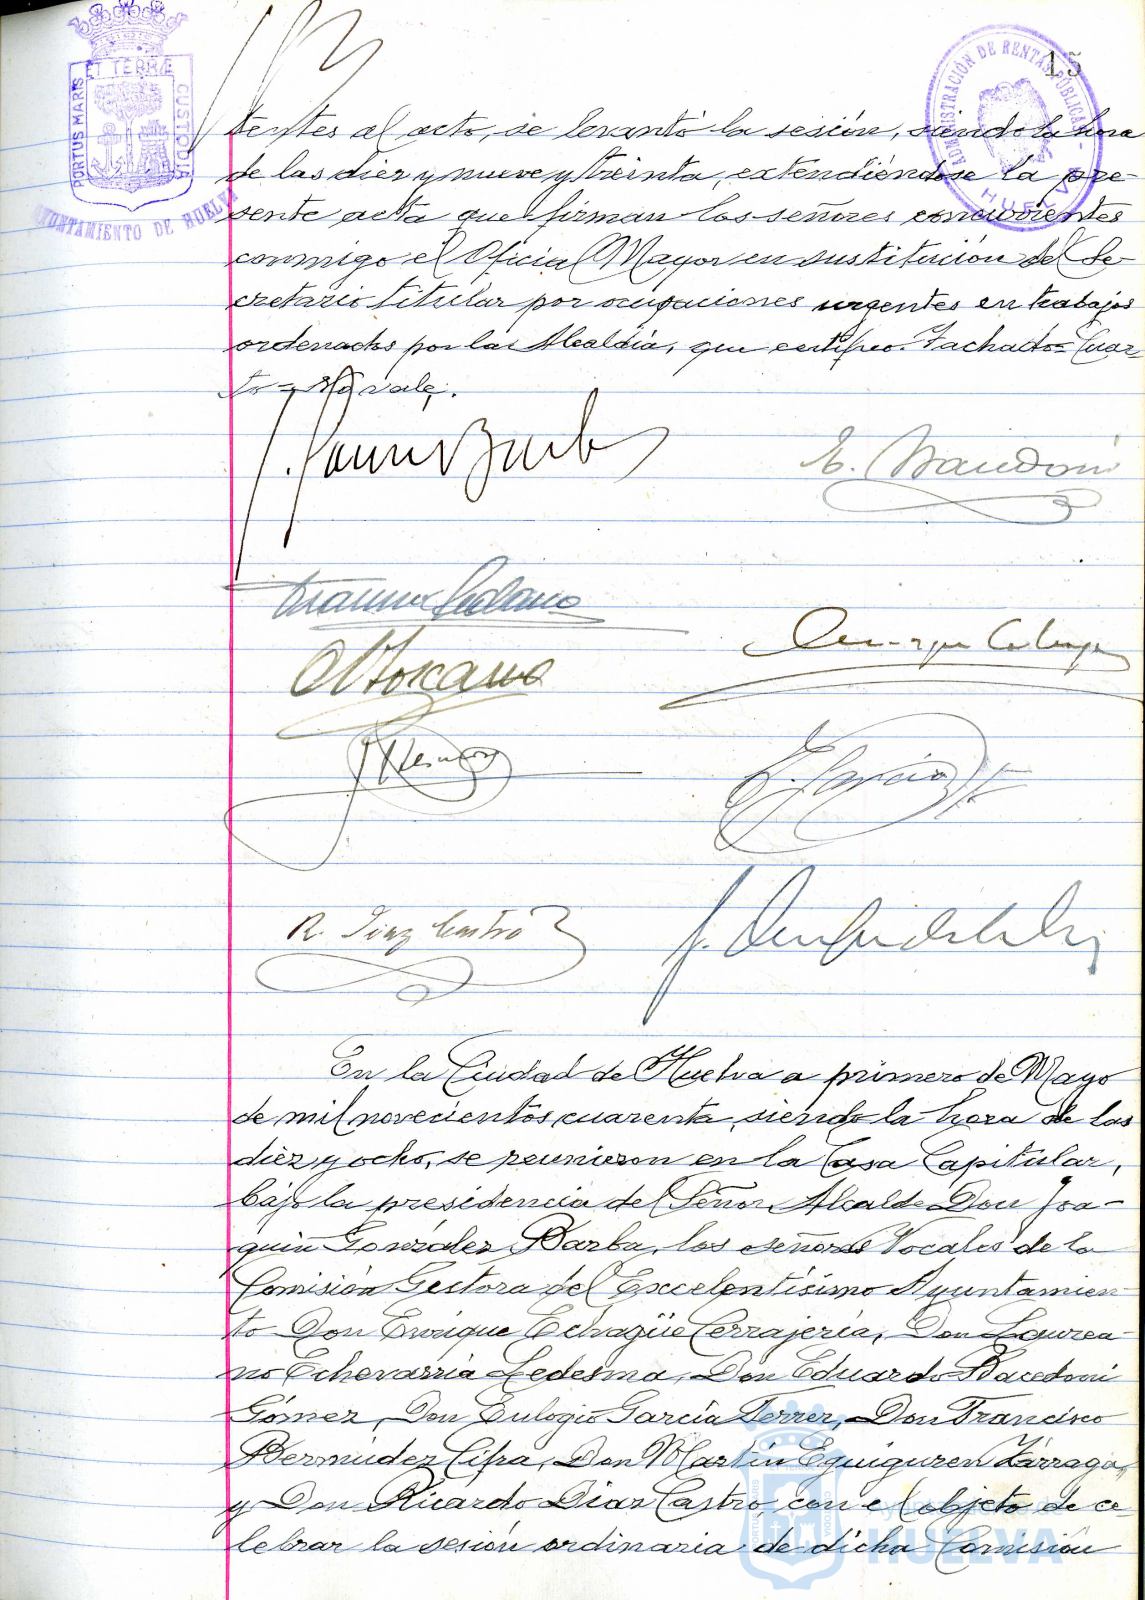 15
PORTUS MARIS
ET TERRÆ
CUSTODIA
AYUNTAMIENTO DE HUELVA
ADMINISTRACIÓN DE RENTAS PÚBLICAS
HUELVA
tentes al acto, se levantó la sesión, siendo la hora
de las diez y nueve y treinta, extendiéndose la pre-
sente acta que firman los señores concurrentes
conmigo el Oficial Mayor en sustitución del Se-
cretario titular por ocupaciones urgentes en trabajos
ordenados por la Alcaldía, que certifico. Tachado = Cuar-
to = No vale.
R. Diaz Castro
En la Ciudad de Huelva a primero de Mayo
de mil novecientos cuarenta, siendo la hora de las
diez y ocho, se reunieron en la Casa Capitular,
bajo la presidencia del Señor Alcalde Don Joa-
quin González Barba, los señores Vocales de la
Comisión Gestora del Excelentísimo Ayuntamien-
to Don Enrique Echagüe Cerrajería, Don Laurea-
no Echevarria Ledesma, Don Eduardo Macedoni
Gómez, Don Eulogio García Ferrer, Don Francisco
Bermúdez Cifra, Don Martín Eguiguren Zárraga,
y Don Ricardo Diaz Castro, con el objeto de ce-
lebrar la sesión ordinaria de dicha Comisión
Ayuntamiento de
HUELVA